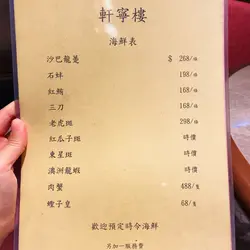 軒寧樓
海鮮表
沙巴龍躉 $ 268/條
石蚌 198/條
紅鮪 168/條
三刀 168/條
老虎斑 298/條
紅瓜子斑 時價
東星斑 時價
澳洲龍蝦 時價
肉蟹 488/隻
螳子皇 68/隻
歡迎預定時令海鮮
另加一服務費